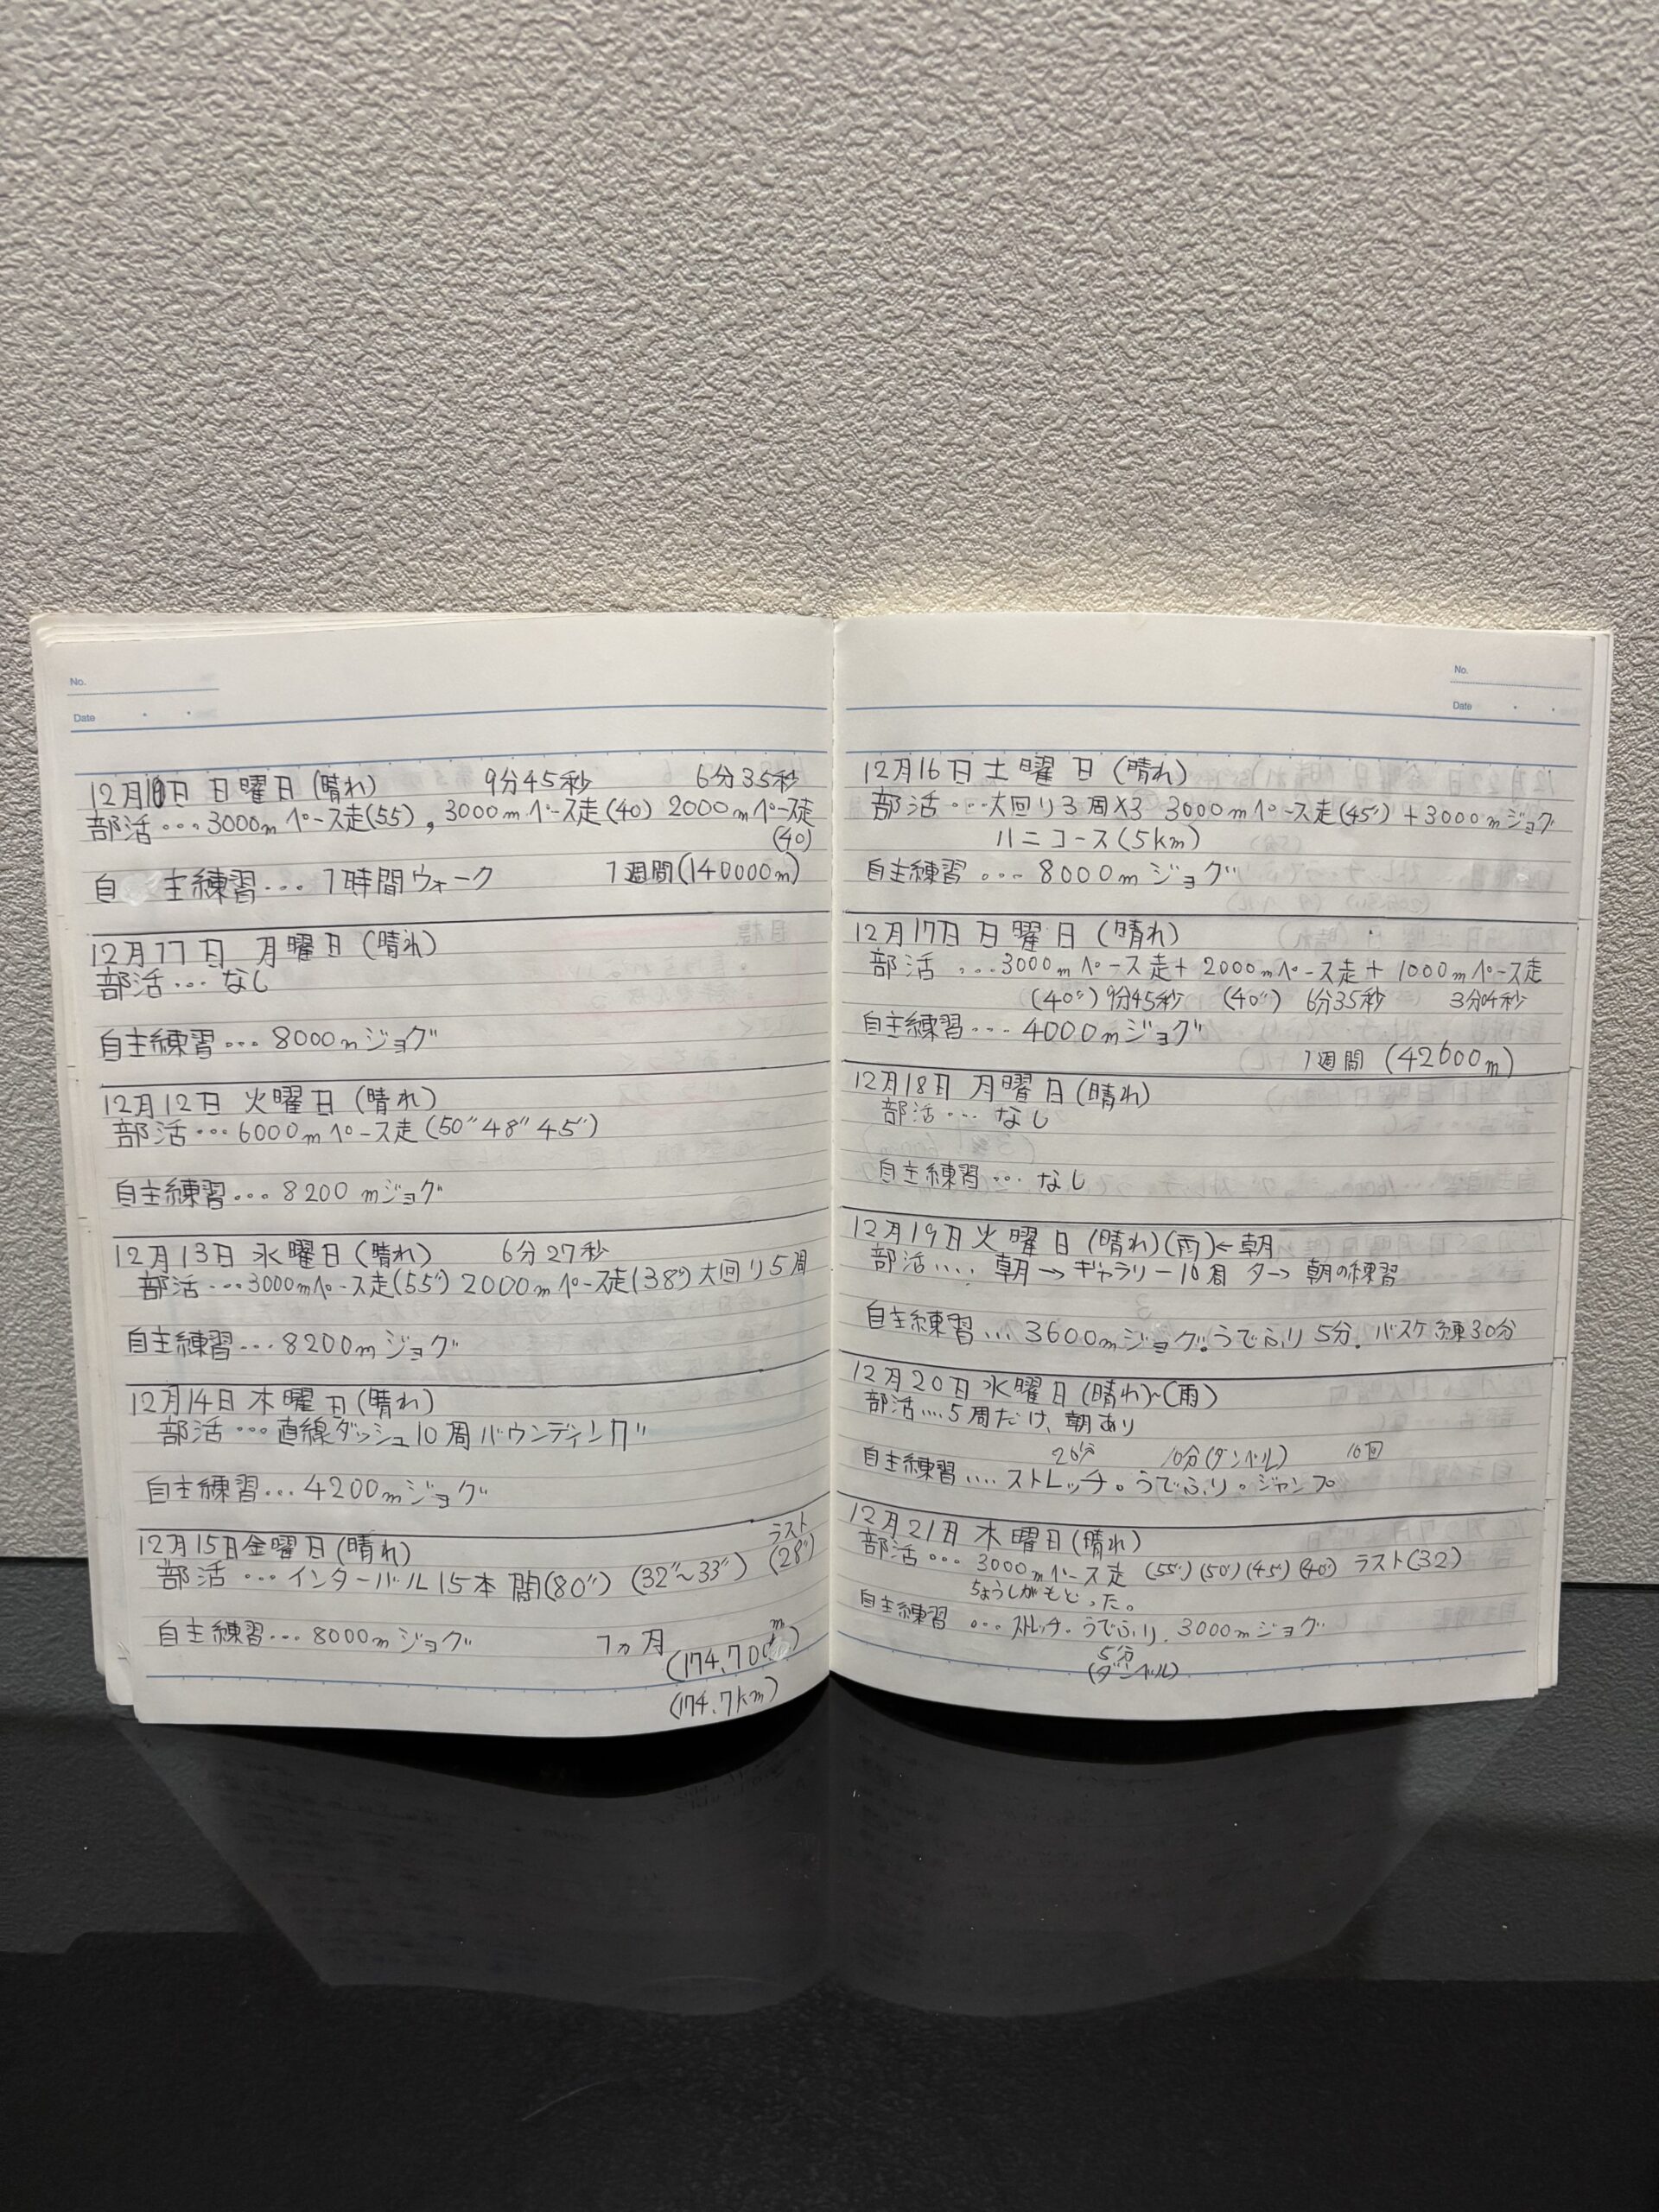 No.
Date
12月10日 日曜日 (晴れ) 9分45秒 6分35秒
部活…3000mペース走(55), 3000mペース走(40) 2000mペース走
(40)
自主練習…1時間ウォーク 1週間(140000m)
12月11日 月曜日 (晴れ)
部活…なし
自主練習…8000mジョグ
12月12日 火曜日 (晴れ)
部活…6000mペース走(50"48"45")
自主練習…8200mジョグ
12月13日 水曜日(晴れ) 6分27秒
部活…3000mペース走(55") 2000mペース走(38") 大回り5周
自主練習…8200mジョグ
12月14日 木曜日(晴れ)
部活…直線ダッシュ10周バウンディング
自主練習…4200mジョグ
12月15日 金曜日(晴れ) ラスト
部活…インターバル15本 間(80") (32"~33") (28")
自主練習…8000mジョグ 1ヵ月
(174,700m)
(174.7km)
No.
Date
12月16日 土曜日 (晴れ)
部活…大回り3周×3 3000mペース走(45") +3000mジョグ
ハニコース(5km)
自主練習…8000mジョグ
12月17日 日曜日 (晴れ)
部活…3000mペース走+2000mペース走+1000mペース走
(40") 9分45秒 (40") 6分35秒 3分04秒
自主練習…4000mジョグ
1週間 (42600m)
12月18日 月曜日(晴れ)
部活…なし
自主練習…なし
12月19日 火曜日 (晴れ)(雨)←朝
部活….朝→ギャラリー10周 夕→朝の練習
自主練習…3600mジョグ。うでふり5分.バスケ練30分
12月20日 水曜日(晴れ)~(雨)
部活….5周だけ、朝あり
20分 10分(ダンベル) 10回
自主練習….ストレッチ。うでふり。ジャンプ
12月21日 木曜日(晴れ)
部活…3000mペース走 (55")(50")(45")(40") ラスト(32)
ちょうしがもどった。
自主練習…ストレッチ.うでふり.3000mジョグ
5分
(ダンベル)